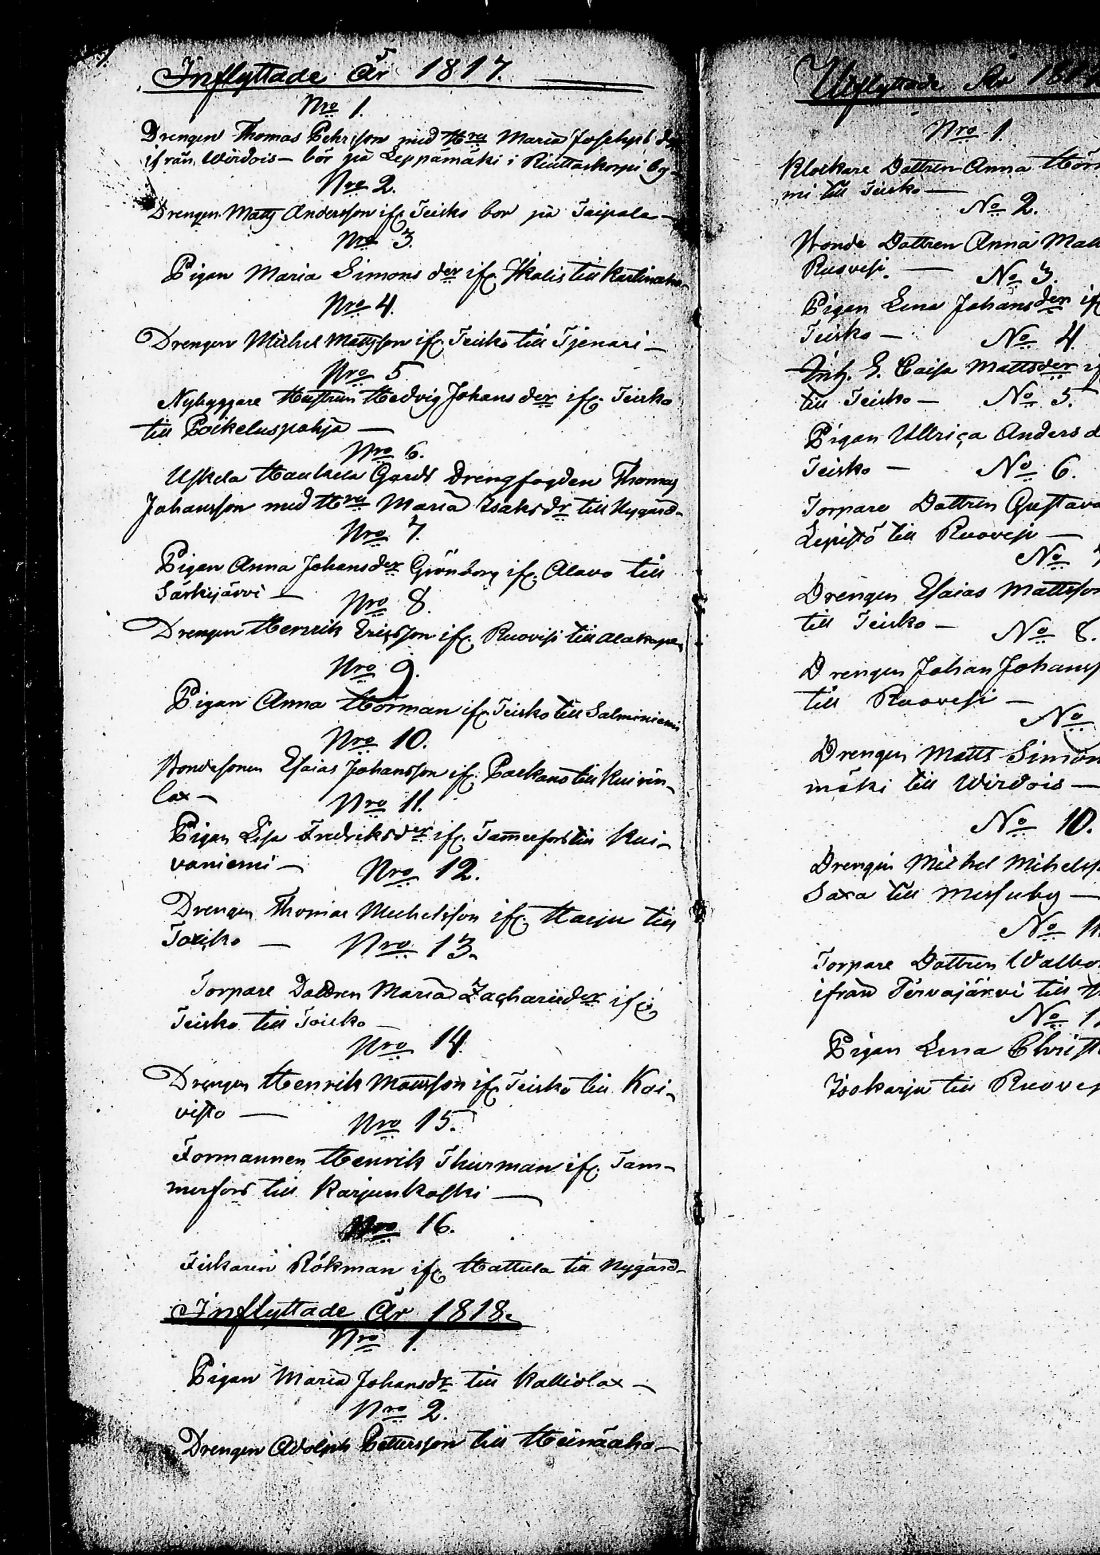 Inflyttade År 1817.
Nro 1.
Drengen Thomas Pehrsson med Hru Maria Josephs d
ifrån Wirdois – bor på Leppämäki i Ruttaskorpi by
Nro 2.
Drengen Matts Andersson ifr Teisko bor på Taipale –
Nro 3.
Pigan Maria Simons der ifr Ikalis till
Nro 4.
Drengen Michel Mattsson ifr Teisko till Tjenari –
Nro 5
Nybyggare Hustrun Hedvig Johans der ifr Teisko
till Poikeluspohja –
Nro 6.
Uskela Gards Drengfogden Thomas
Johansson med Hru Maria Isaks dr till Nygård
Nro 7.
Pigan Anna Johans der Grönborg ifr Alavo till
Särkijärvi –
Nro 8.
Drengen Henrik Ericsson ifr Ruovesi till
Nro 9.
Pigan Anna Hörman ifr Teisko till Salminiemi
Nro 10.
Bondesonen Esaias Johansson ifr Paekane till Kuivin-
lax –
Nro 11.
Pigan Lisa Fredriksder ifr Tammerfors till Kui-
vaniemi –
Nro 12.
Drengen Thomas Michelsson ifr Harju till
Toisko –
Nro 13.
Torpare Dottren Maria Zachariæder ifr
Teisko till Toisko –
Nro 14.
Drengen Henrik Mattsson ifr Teisko till Koi-
visto –
Nro 15.
Formannen Henrik Thurman ifr Tam-
merfors till Karjunkoski –
Nro 16.
Fiskaren Rökman ifr Hattula till Nygård
Inflyttade År 1818.
Nro 1.
Pigan Maria Johansdr till Kalliolax –
Nro 2.
Drengen Adolph Pettersson till Heinäaho –
Utflyttade År 181
Nro 1.
Klockare Dottren Anna Hörn
mi till Teisko –
No 2.
Bonde Dottren Anna Mat
Ruovesi. –
No 3.
Pigan Lena Johansder if
Teisko –
No 4
Inh. E. Caisa Mattsder if
till Teisko –
No 5.
Pigan Ullrica Anders d
Teisko –
No 6.
Torpare Dottren Gustava
Lepistö till Ruovesi –
No 7
Drengen Esaias Mattsson
till Teisko –
No 8.
Drengen Johan Johanss
till Ruovesi –
No
Drengen Matts Simon
mäki till Wirdois –
No 10.
Drengen Michel Michels
Saxa till Messuby –
No 1
Torpare Dottren Walbo
ifrån Tervajärvi till
No 1
Pigan Lena Christ
Isokarju till Ruoves